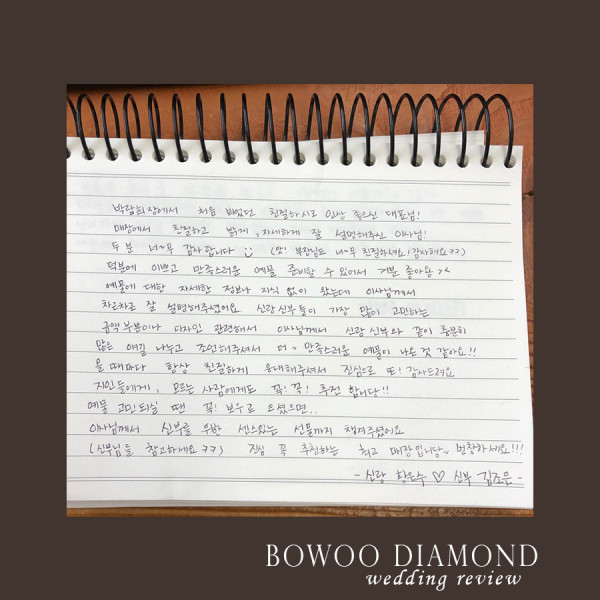 박람회장에서 처음 뵈었던 친절하시고 인상 좋으신 대표님!
매장에서 친절하고 밝게, 자세하게 잘 설명해주신 이사님!
두 분 너~무 감사합니다 :) (앗! 부장님도 너~무 친절하세요! 감사해요ㅋㅋ)
덕분에 이쁘고 만족스러운 예물 준비할 수 있어서 기분 좋아용 ><
예물에 대한 자세한 정보나 지식 없이 왔는데 이사님께서
차근차근 잘 설명해주셨어요 신랑신부들이 가장 많이 고민하는
금액부분이나 디자인 관련해서 이사님께서 신랑신부와 같이 충분히
많은 얘길 나누고 조언해주셔서 더~ 만족스러운 예물이 나온 것 같아요!!
올때마다 항상 친절하게 응대해주셔서 진심으로 또! 감사드려요
지인들에게, 모르는 사람에게도 꼭! 꼭! 추천 합니다!!
예물 고민되실 땐 꼭! 보우로 오셨으면..
이사님께서 신부를 위한 센스있는 선물까지 챙겨주셨어요
(신부님들 참고하세요ㅋㅋ) 진심 꼭 추천하는 최고 매장입니당~ 번창하세요!!!
- 신랑 황윤수 ♡ 신부 김조은 -
BOWOO DIAMOND
wedding review